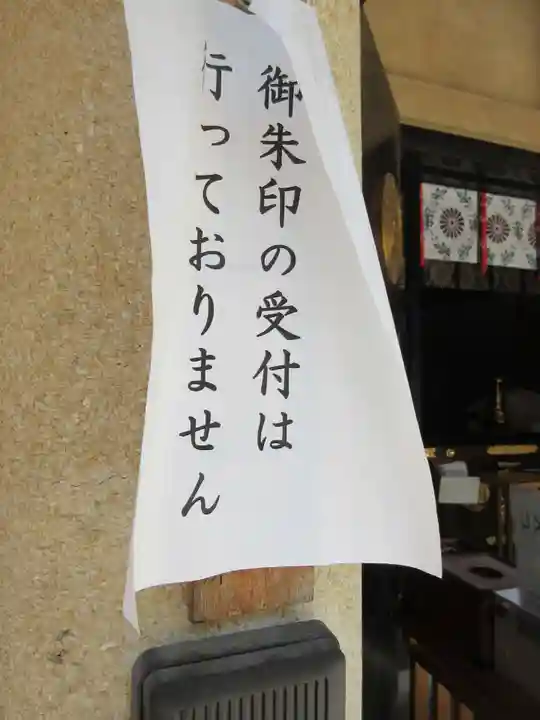 御朱印の受付は
行っておりません